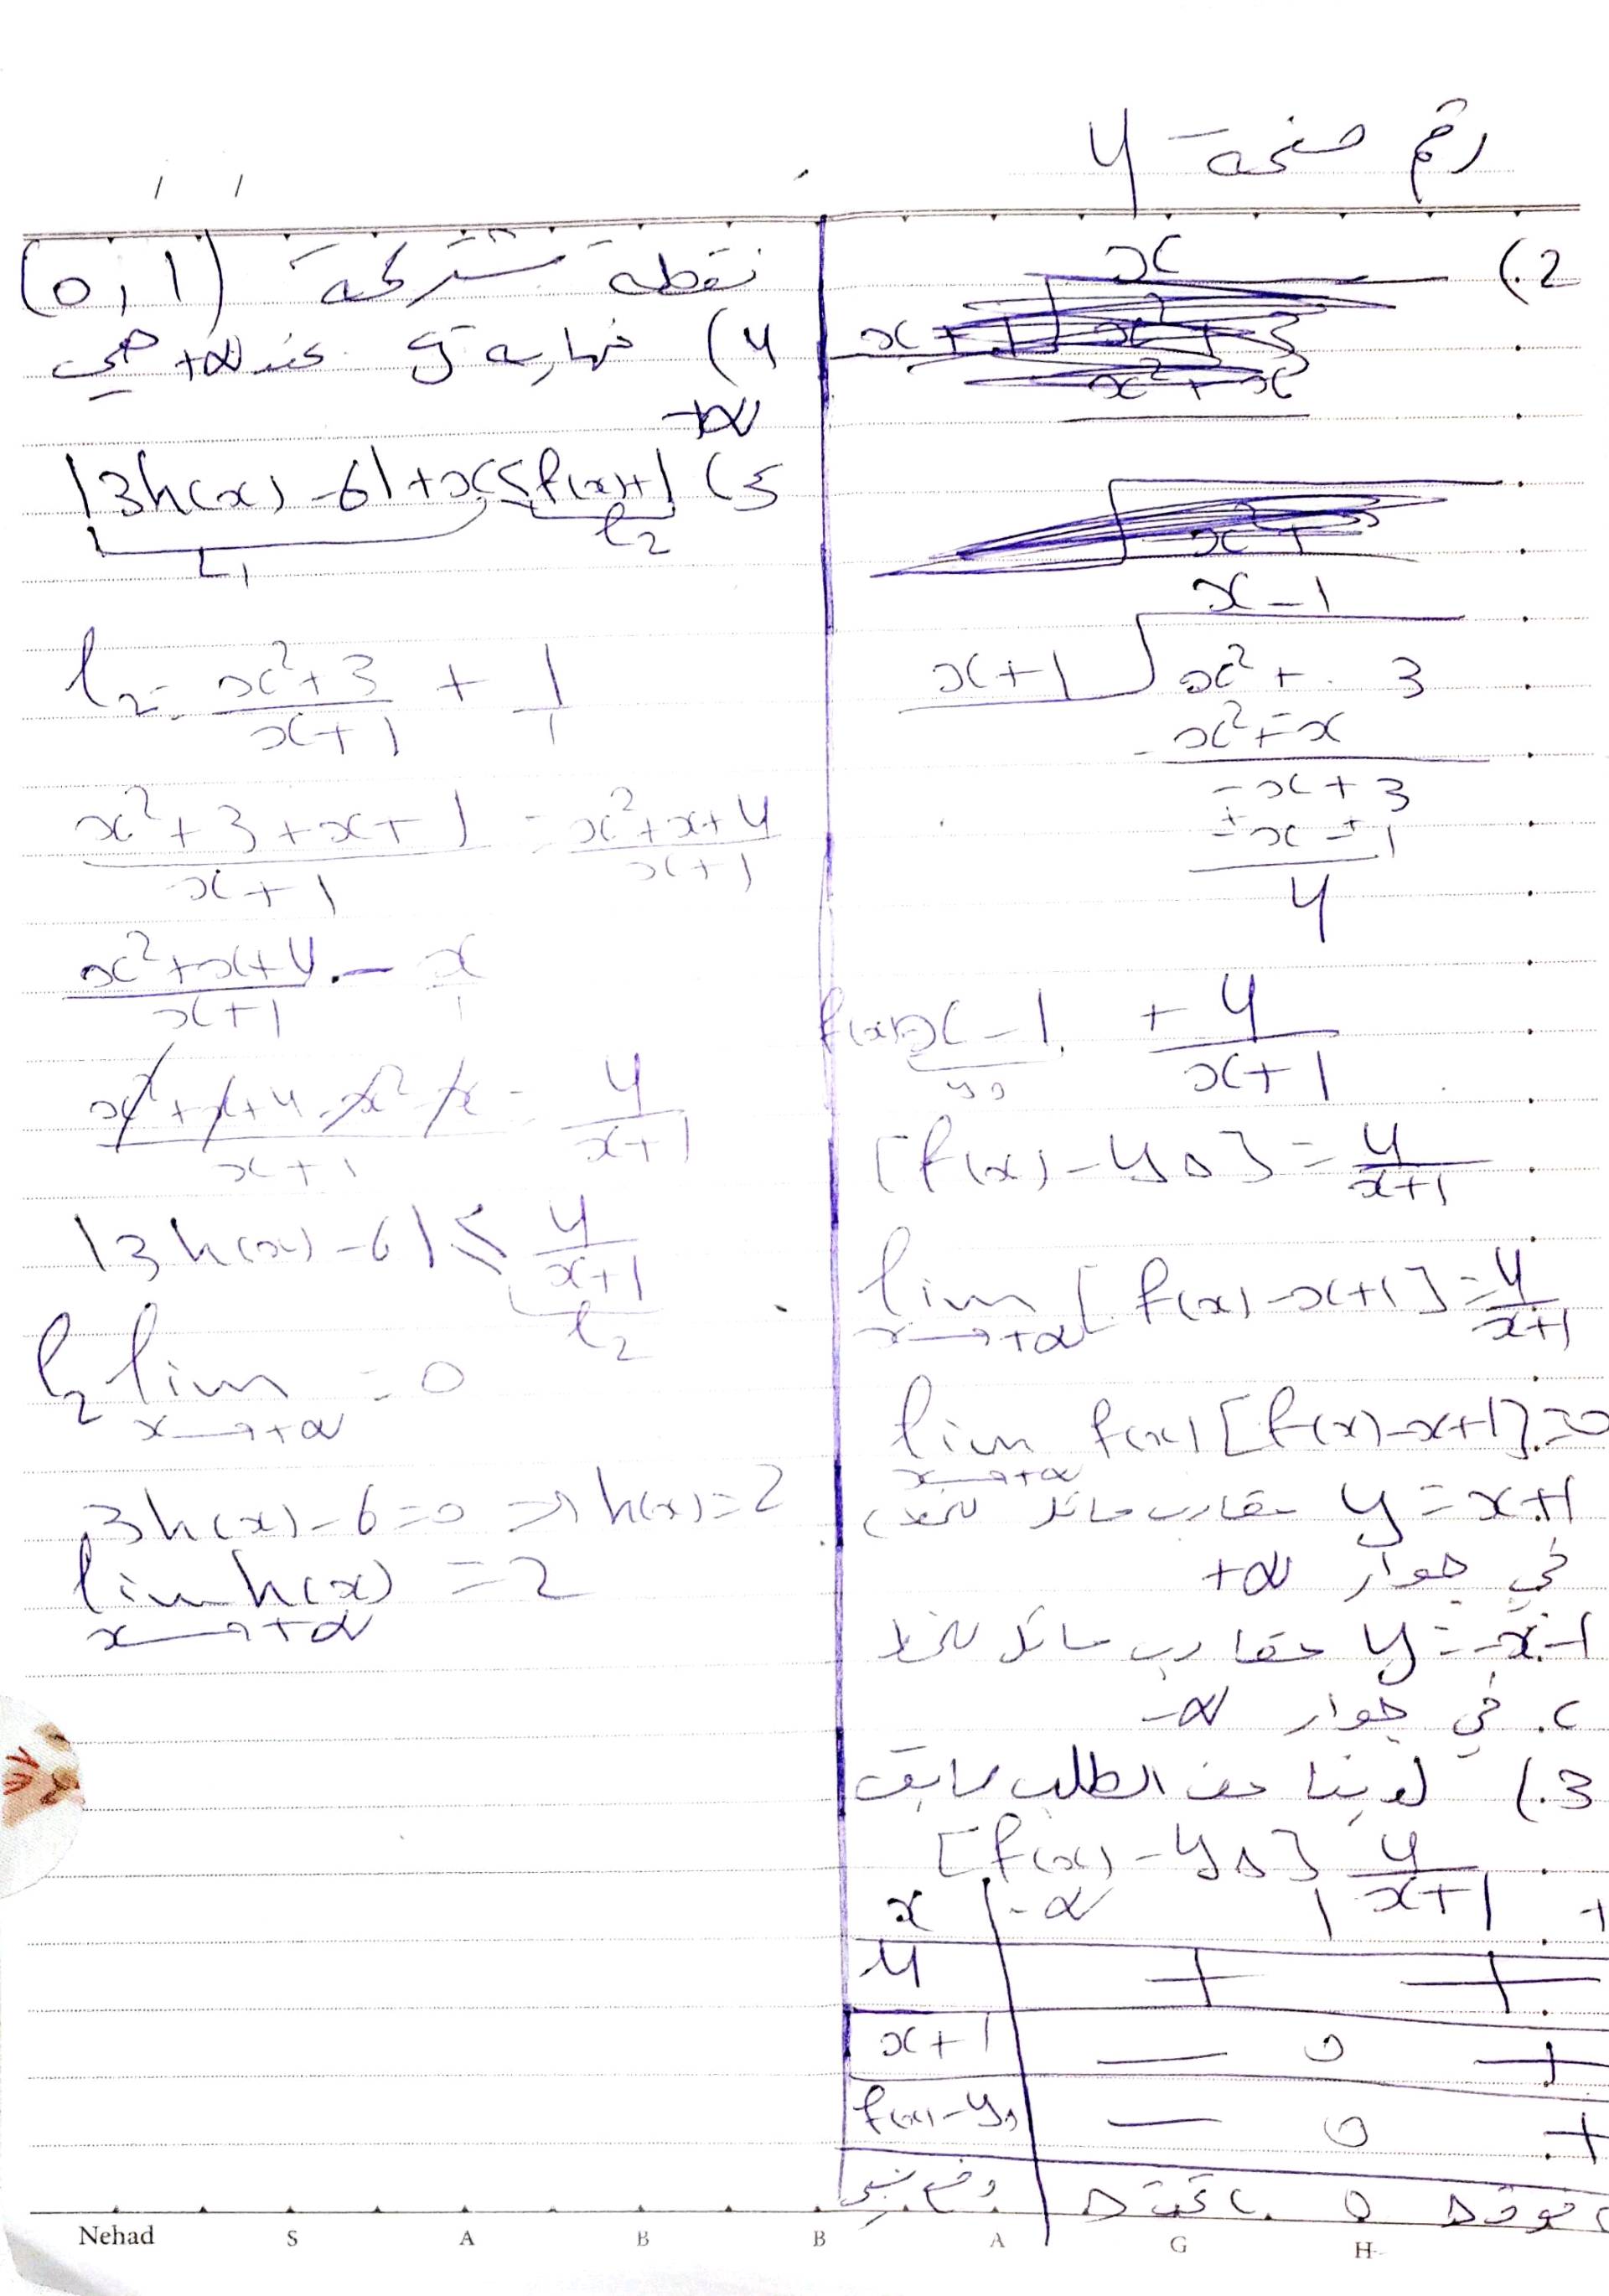 رقم صفحة 4
2)
x
x+1 x²+3
x²+x
x²+
x-1
x+1 x²+ 3
-x²+-x
-x+3
+-x-+1
4
f(x)=x-1 + 4/(x+1)
yΔ
[f(x)-yΔ]=4/(x+1)
lim x→+∞ [f(x)-x+1]=4/(x+1)
lim x→+∞ f(x)[f(x)-x+1]=0
y=x+1 مقارب مائل للخط C
في جوار +∞
y=-x-1 مقارب مائل للخط
C في جوار -∞
3) لدينا من الطلب سابق
[f(x)-yΔ] 4/(x+1)
x -∞ 1 +
4 + +
x+1 — 0 +
f(x)-yΔ — 0 +
وضع نسبي C تحت Δ C فوق Δ
نقطة مشتركة (0,1)
4) نهاية g عند +∞ هي
+∞
5) |3h(x)-6|+x≤f(x)+1
L1 l2
l2= (x²+3)/(x+1) + 1/1
(x²+3+x+1)/(x+1) = (x²+x+4)/(x+1)
(x²+x+4)/(x+1) - x/1
(x²+x+4-x²-x)/(x+1) = 4/(x+1)
|3h(x)-6|≤ 4/(x+1)
l2
l2 lim x→+∞ =0
3h(x)-6=0 ⇒ h(x)=2
lim h(x) =2
x→+∞
Nehad S A B B A G H